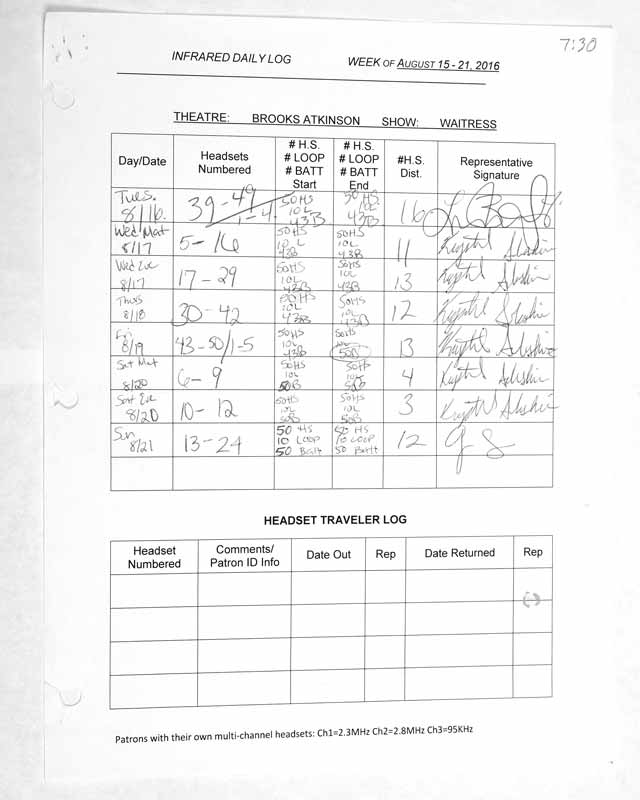 7:30
INFRARED DAILY LOG WEEK OF AUGUST 15 - 21, 2016
THEATRE: BROOKS ATKINSON SHOW: WAITRESS
Day/Date Headsets Numbered # H.S. # LOOP # BATT Start # H.S. # LOOP # BATT End #H.S. Dist. Representative Signature
Tues. 8/16. 39-49/1-4. 50HS 10L 43B 50HS. 10L 43B 16
Wed Mat 8/17 5-16 50HS 10L 43B 50HS 10L 43B 11 Krystal
Wed Eve 8/17 17-29 50HS 10L 43B 50HS 10L 43B 13 Krystal
Thurs 8/18 30-42 50HS 10L 43B 50HS 10L 43B 12 Krystal
Fri 8/19 43-50/1-5 50HS 10L 43B 50HS 10L 50B 13 Krystal
Sat Mat 8/20 6-9 50HS 10L 50B 50HS 10L 50B 4 Krystal
Sat Eve 8/20 10-12 50HS 10L 50B 50HS 10L 50B 3 Krystal
Sun 8/21 13-24 50 HS 10 LOOP 50 Batt 50 HS 10 LOOP 50 Batt 12
HEADSET TRAVELER LOG
Headset Numbered Comments/ Patron ID Info Date Out Rep Date Returned Rep
Patrons with their own multi-channel headsets: Ch1=2.3MHz Ch2=2.8MHz Ch3=95KHz